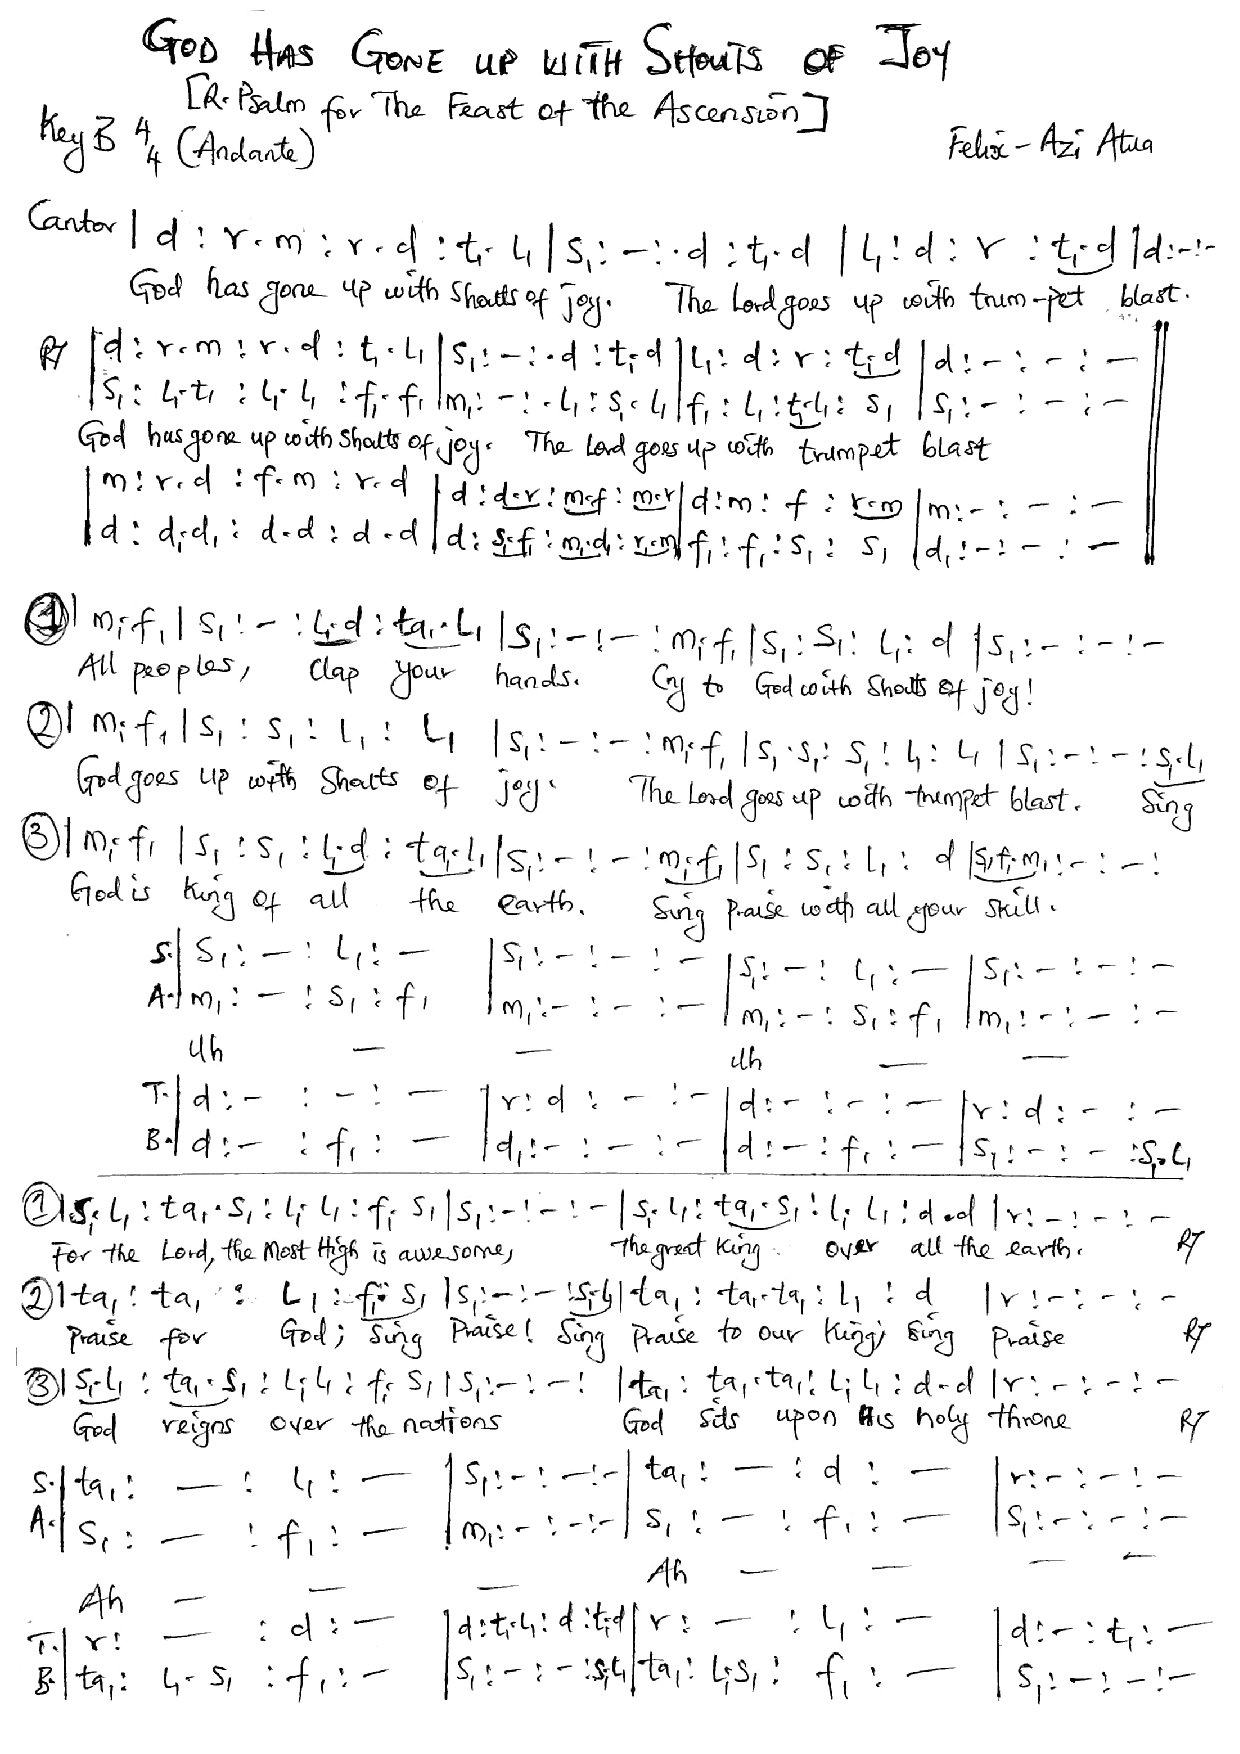 GOD HAS GONE UP WITH SHOUTS OF JOY
[R. Psalm for The Feast of the Ascension]
Key B 4/4 (Andante)
Felix - Azi Atua
Cantor | d : r.m : r.d : t₁.l₁ | s₁ : - : .d : t₁.d | l₁ : d : r : t₁.d | d : - : -
God has gone up with shouts of joy. The Lord goes up with trum-pet blast.
R/ | d : r.m : r.d : t₁.l₁ | s₁ : - : .d : t₁.d | l₁ : d : r : t₁.d | d : - : - : -
| s₁ : l₁.t₁ : l₁.l₁ : f₁.f₁ | m₁ : - : .l₁ : s₁.l₁ | f₁ : l₁ : t₁.l₁ : s₁ | s₁ : - : - : -
God has gone up with shouts of joy. The Lord goes up with trumpet blast
| m : r.d : f.m : r.d | d : d.r : m.f : m.r | d : m : f : r.m | m : - : - : -
| d : d₁.d₁ : d.d : d.d | d : s₁.f₁ : m₁.d₁ : r₁.m₁ | f₁ : f₁ : s₁ : s₁ | d₁ : - : - : -
① | m₁.f₁ | s₁ : - : l₁.d : ta₁.l₁ | s₁ : - : - : m₁.f₁ | s₁ : s₁ : l₁ : d | s₁ : - : - : -
All peoples, clap your hands. Cry to God with shouts of joy!
② | m₁.f₁ | s₁ : s₁ : l₁ : l₁ | s₁ : - : - : m₁.f₁ | s₁.s₁ : s₁ : l₁ : l₁ | s₁ : - : - : s₁.l₁
God goes up with shouts of joy. The Lord goes up with trumpet blast. Sing
③ | m₁.f₁ | s₁ : s₁ : l₁.d : ta₁.l₁ | s₁ : - : - : m₁.f₁ | s₁ : s₁ : l₁ : d | s₁.f₁.m₁ : - : - :
God is King of all the earth. Sing praise with all your skill.
S. | s₁ : - : l₁ : - | s₁ : - : - : - | s₁ : - : l₁ : - | s₁ : - : - : -
A. | m₁ : - : s₁ : f₁ | m₁ : - : - : - | m₁ : - : s₁ : f₁ | m₁ : - : - : -
Uh — — Uh — —
T. | d : - : - : - | r : d : - : - | d : - : - : - | r : d : - : -
B. | d : - : f₁ : - | d₁ : - : - : - | d : - : f₁ : - | s₁ : - : - : s₁.l₁
① | s₁.l₁ : ta₁.s₁ : l₁.l₁ : f₁.s₁ | s₁ : - : - : - | s₁.l₁ : ta₁.s₁ : l₁.l₁ : d.d | r : - : - : -
For the Lord, the Most High is awesome, The great King over all the earth. R/
② | ta₁ : ta₁ : l₁ : f₁.s₁ | s₁ : - : - : s₁.l₁ | ta₁ : ta₁.ta₁ : l₁ : d | r : - : - : -
Praise for God; Sing Praise! Sing Praise to our King; Sing Praise R/
③ | s₁.l₁ : ta₁.s₁ : l₁.l₁ : f₁.s₁ | s₁ : - : - : | ta₁ : ta₁.ta₁ : l₁.l₁ : d.d | r : - : - : -
God reigns over the nations God sits upon His holy throne R/
S. | ta₁ : — : l₁ : — | s₁ : - : - : - | ta₁ : — : d : — | r : - : - : -
A. | s₁ : — : f₁ : — | m₁ : - : - : - | s₁ : — : f₁ : — | s₁ : - : - : -
Ah — — — Ah — — — —
T. | r : — : d : — | d : t₁.l₁ : d : t₁.d | r : — : l₁ : — | d : - : t₁ : —
B. | ta₁ : l₁.s₁ : f₁ : - | s₁ : - : - : s₁.l₁ | ta₁ : l₁.s₁ : f₁ : — | s₁ : - : - : -